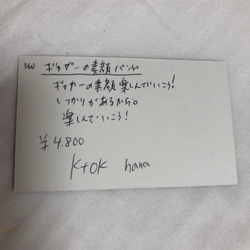 360 ギャガーの素顔 バンド
ギャガーの素顔 楽しんでいこう!
しっかりがあるから。
楽しんでいこう!
¥4.800
KtOK hana